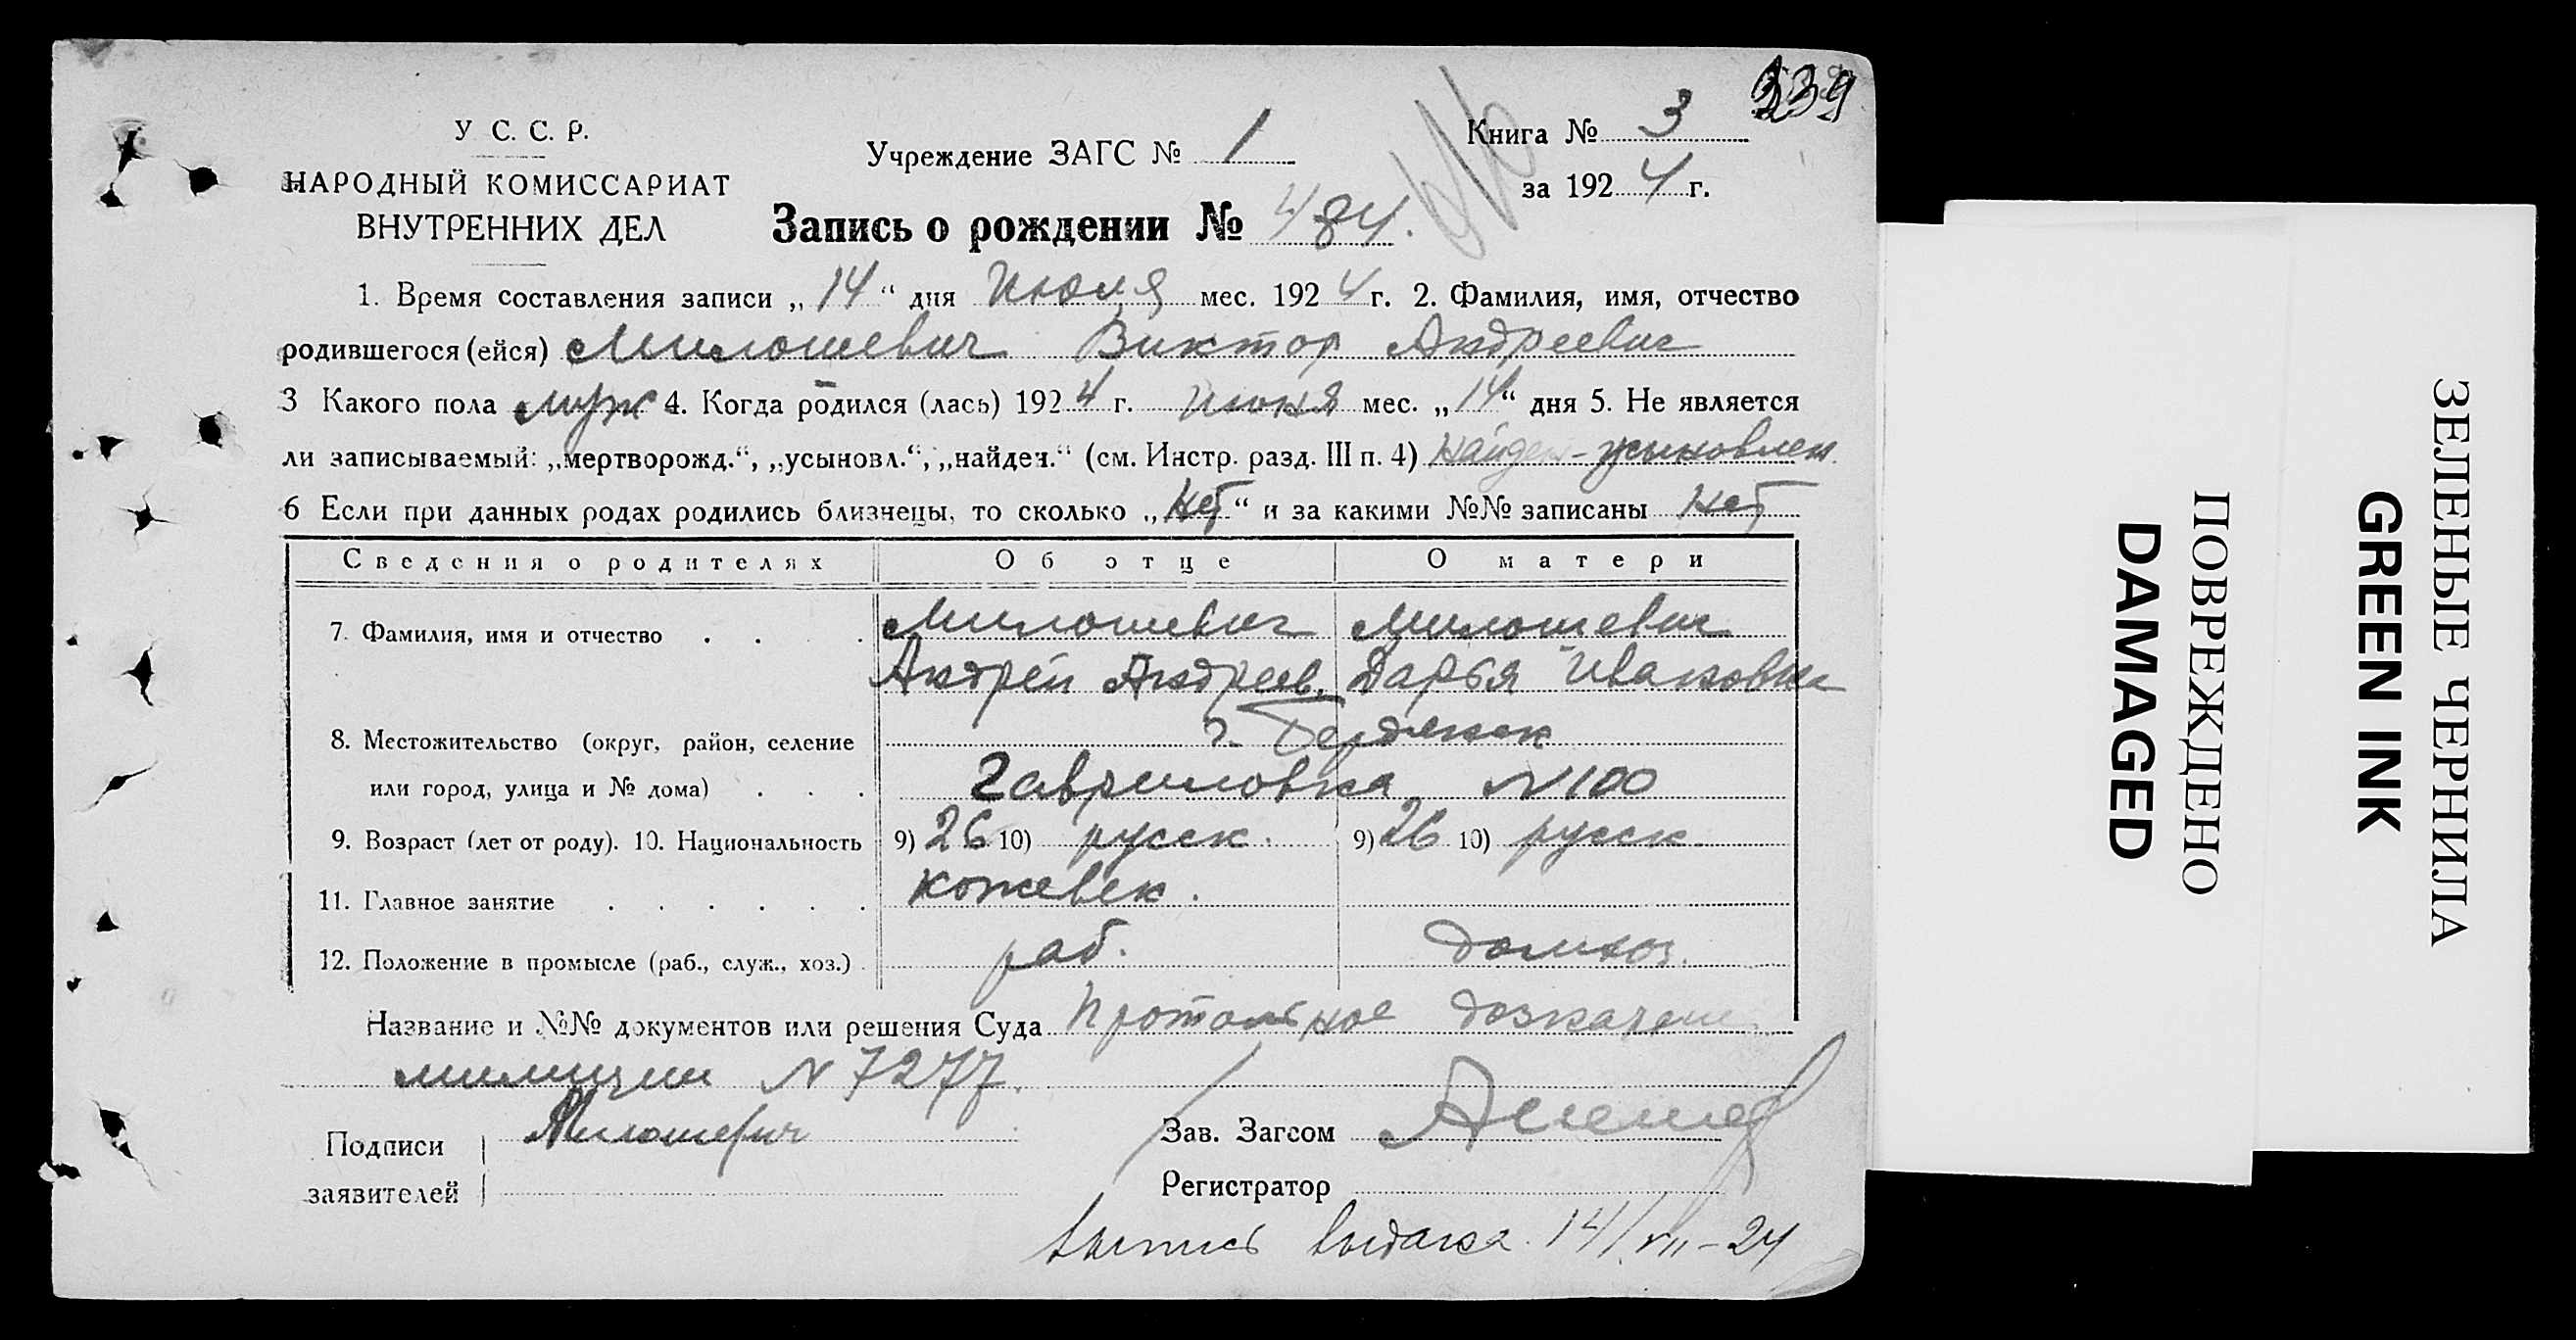 339
У С. С. Р.
НАРОДНЫЙ КОМИССАРИАТ
ВНУТРЕННИХ ДЕЛ
Учреждение ЗАГС № 1
Книга № 3
за 1924 г.
Запись о рождении № 484.
1. Время составления записи „14“ дня Июля мес. 1924 г. 2. Фамилия, имя, отчество
родившегося (ейся) Милошевич Виктор Андреевич
3 Какого пола муж 4. Когда родился (лась) 1924 г. июня мес. „14“ дня 5. Не является
ли записываемый: „мертворожд.“, „усыновл.“, „найден.“ (см. Инстр. разд. III п. 4) найден-усыновлен.
6 Если при данных родах родились близнецы, то сколько „нет“ и за какими №№ записаны нет
Сведения о родителях Об отце О матери
7. Фамилия, имя и отчество . . . . Милошевич Милошевич
Андрей Андреев. Дарья Ивановна
8. Местожительство (округ, район, селение г. Бердянск
или город, улица и № дома) . . . Гавриловка N 100
9. Возраст (лет от роду). 10. Национальность 9) 26 10) русск. 9) 26 10) русск.
11. Главное занятие . . . . . . кожевек.
12. Положение в промысле (раб., служ., хоз.) . раб. домхоз.
Название и №№ документов или решения Суда
милиции N 7277.
Подписи Милошевич
заявителей
Зав. Загсом
Регистратор
выпись выдана 14/VII-24
ПОВРЕЖДЕНО
DAMAGED
ЗЕЛЕНЫЕ ЧЕРНИЛА
GREEN INK